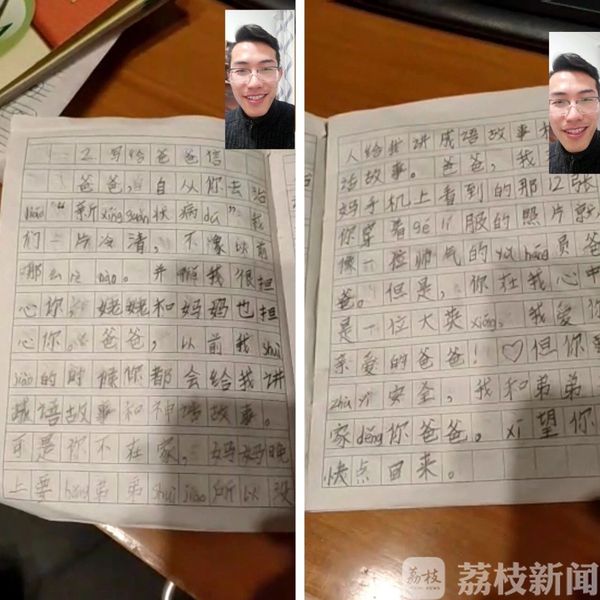 2 写给爸爸信
爸爸,自从你去治
liáo“新xīngguān状病dú”我
们一片冷清,不像以前
那么rè nào。并且我很担
心你,姥姥和妈妈也担
心你。爸爸,以前我shuì
jiào的时候你都会给我讲
成语故事和神话故事。
可是你不在家,妈妈晚
上要hǒng弟弟shuì jiào所以没
人给我讲成语故事
话故事。爸爸,我
妈手机上看到的那12张
你穿着gé lí服的照片就
像一位帅气的yǔ háng员爸
爸。但是,你在我心中
是一位大英xióng,我爱你
亲爱的爸爸!♡但你要
zhù yì安全,我和弟弟
家děng你爸爸。xī望你
快点回来。
荔枝
荔枝新闻